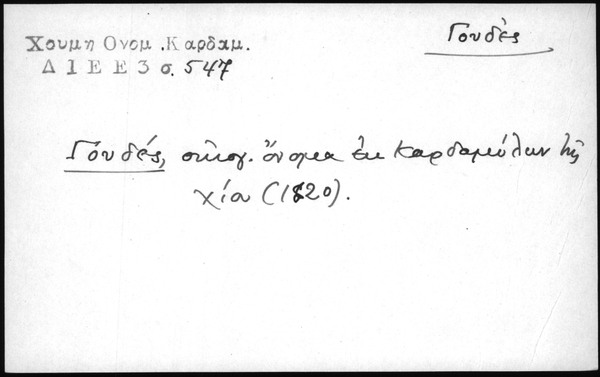 Χουμη Ονομ. Καρδαμ.
Δ Ι Ε Ε 3 σ. 547
Γουδές
Γουδές, οἰκογ. ὄνομα ἐκ Καρδαμύλων τῆς
Χίου (1820).